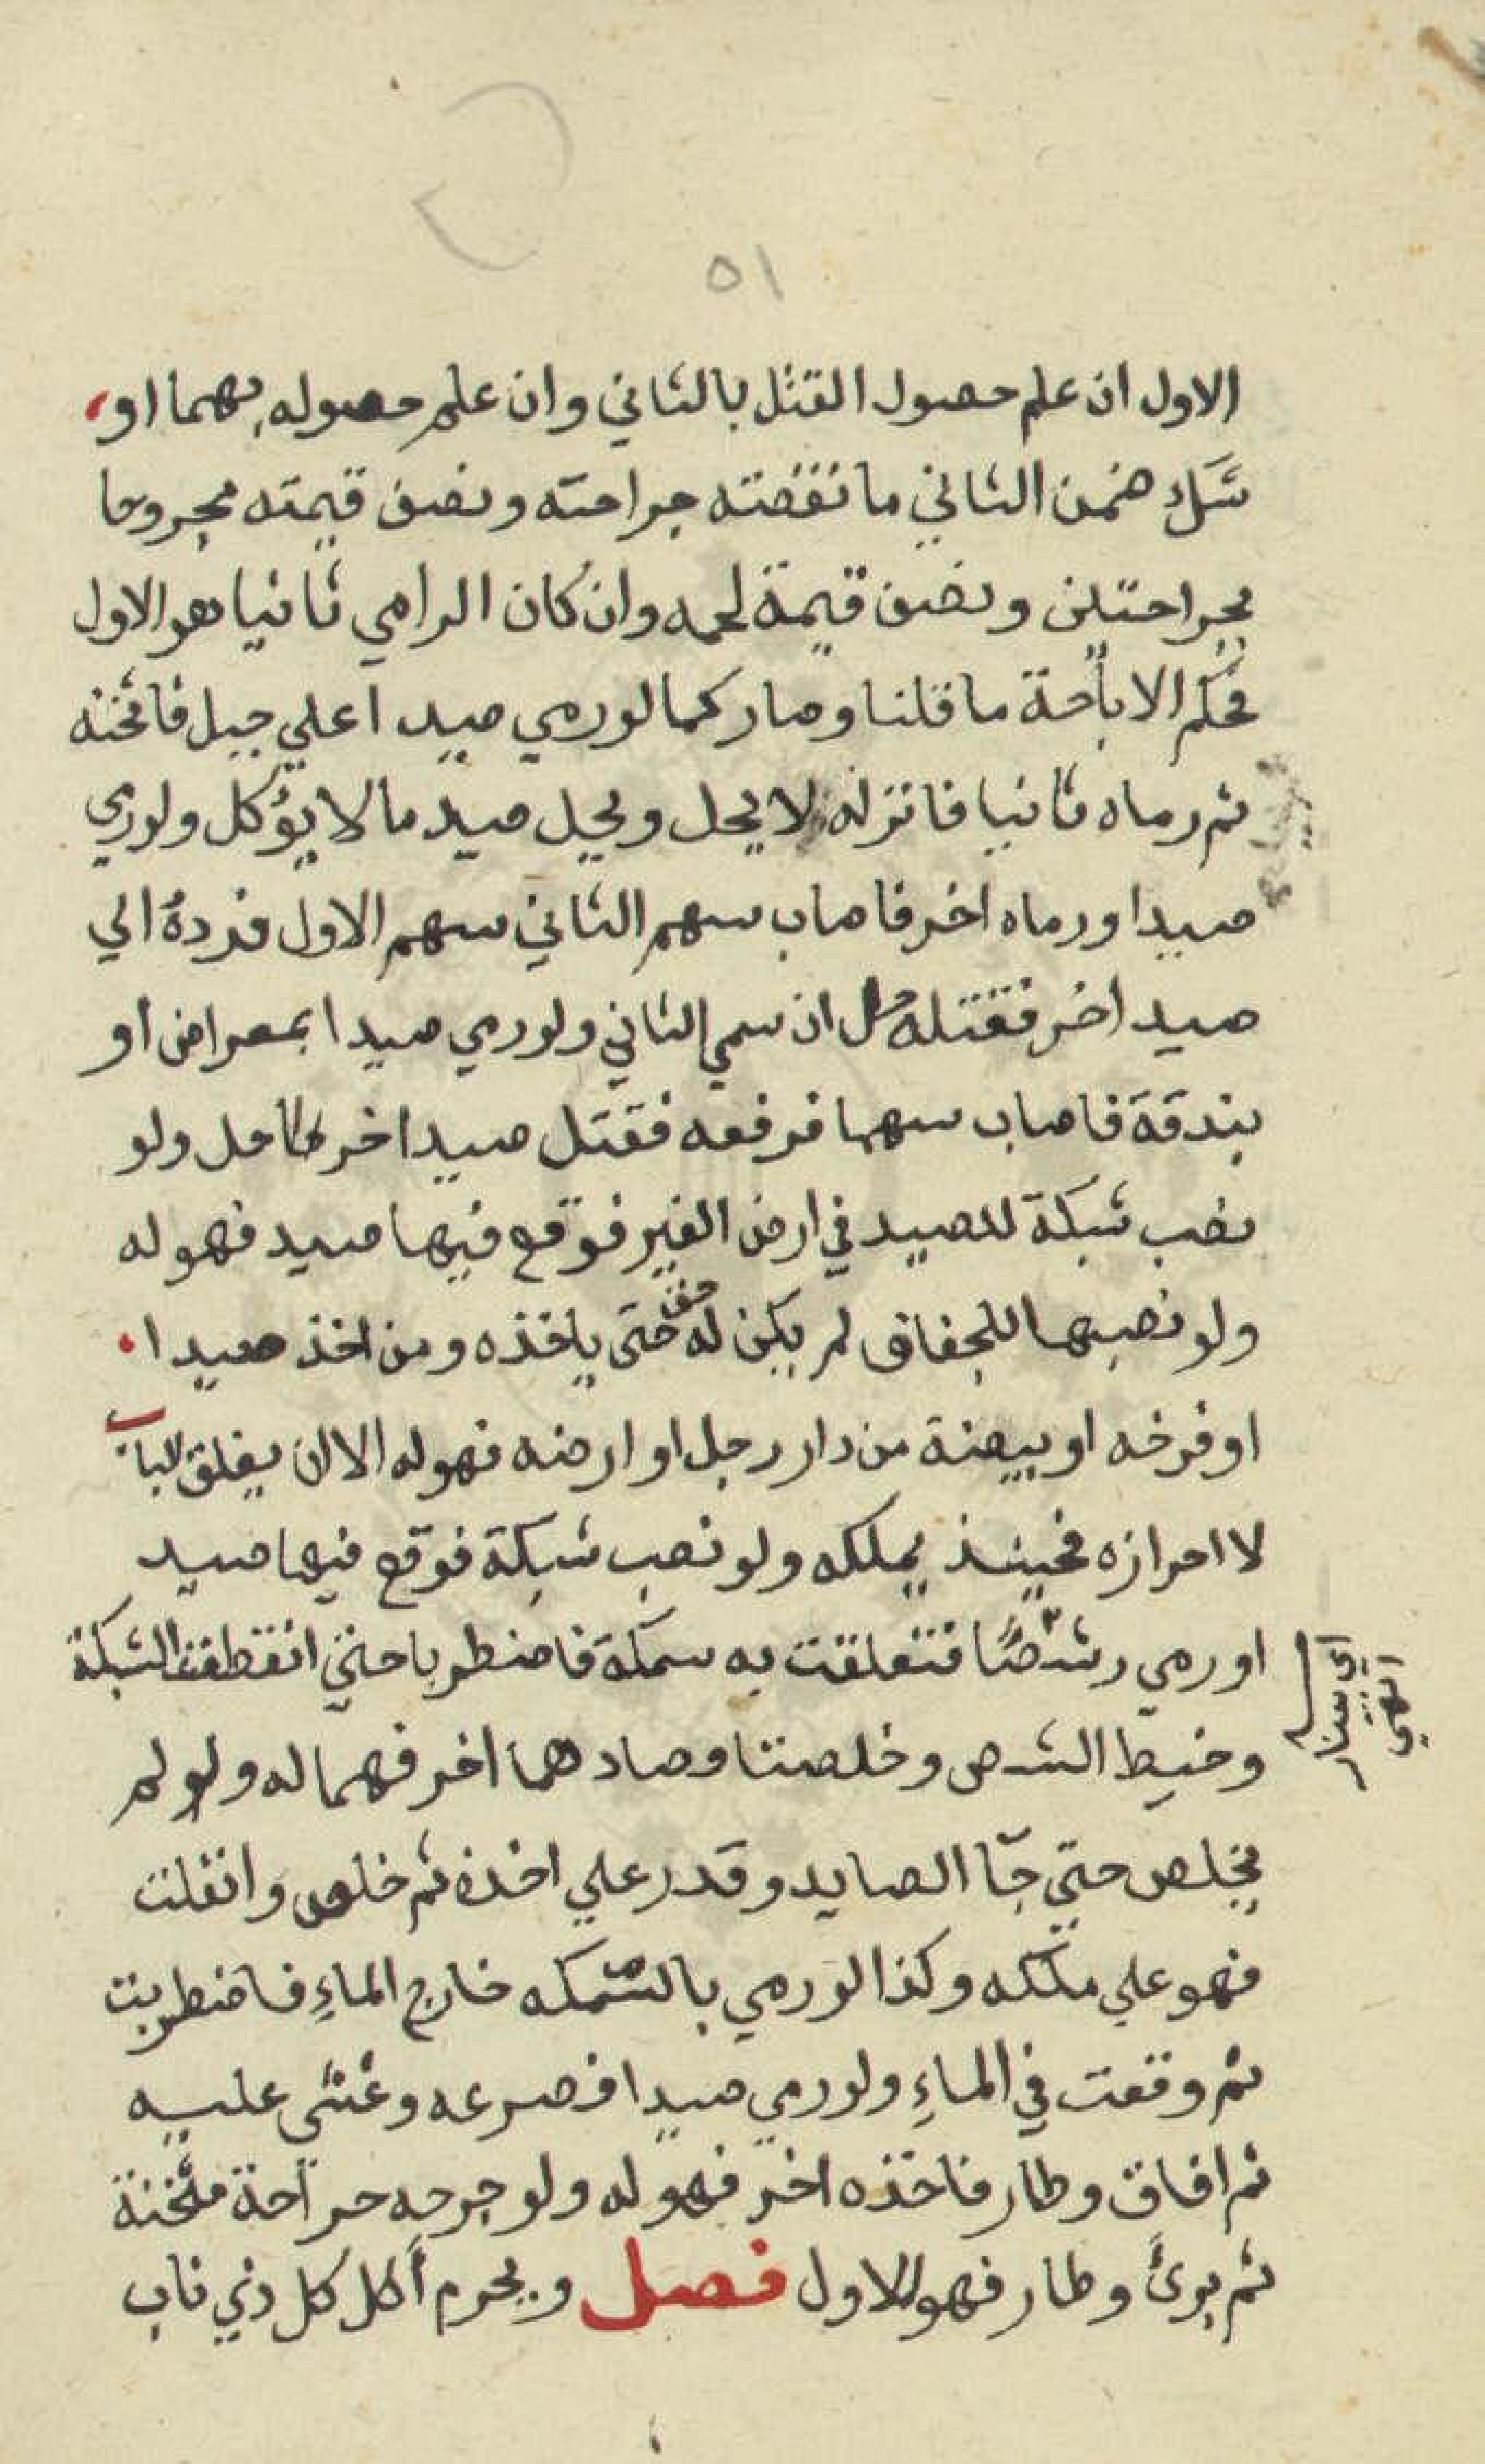 ٥١
الاول ان علم حصول القتل بالثاني وان علم حصوله بهما او
شك ضمن الثاني ما نقصته جراحته ونصف قيمته مجروحا
بجراحتين ونصف قيمة لحمه وان كان الرامي ثانيا هو الاول
فحكم الاباحة ما قلنا وصار كما لو رمي صيدا علي جبل فاثخنه
ثم رماه ثانيا فانزله لا يحل ويحل صيد ما لا يؤكل ولو رمي
صيدا ورماه اخر فاصاب سهم الثاني سهم الاول فرده الي
صيد اخر فقتله حل ان سمي الثاني ولو رمي صيدا بمعراض او
بندقة فاصاب سهما فرفعه فقتل صيدا خر حل ولو
نصب شبكة للصيد في ارض الغير فوقع فيها صيد فهو له
ولو نصبها للجفاف لم يكن له حق حتى ياخذه ومن اخذ صيدا
او فرخه او بيضة من دار رجل او ارضه فهو له الا ان يغلق الباب
لا احرازه فحينئذ يملكه ولو نصب شبكة فوقع فيها صيد
او رمي شصا فتعلقت به سمكة فاضطربا حتي انقطعت الشبكة
وخيط الشص وخلصتا وصادهما اخر فهما له ولو لم
يخلص حتي جا الصايد وقدر علي اخذه ثم خلص وانفلت
فهو علي ملكه وكذا لو رمي بالسمكه خارج الماء فاضطربت
ثم وقعت في الماء ولو رمي صيدا فصرعه وغشى عليه
ثم افاق وطار فاخذه اخر فهو له ولو جرحه جراحة مثخنة
ثم برئ وطار فهو للاول فصل ويحرم أكل كل ذي ناب